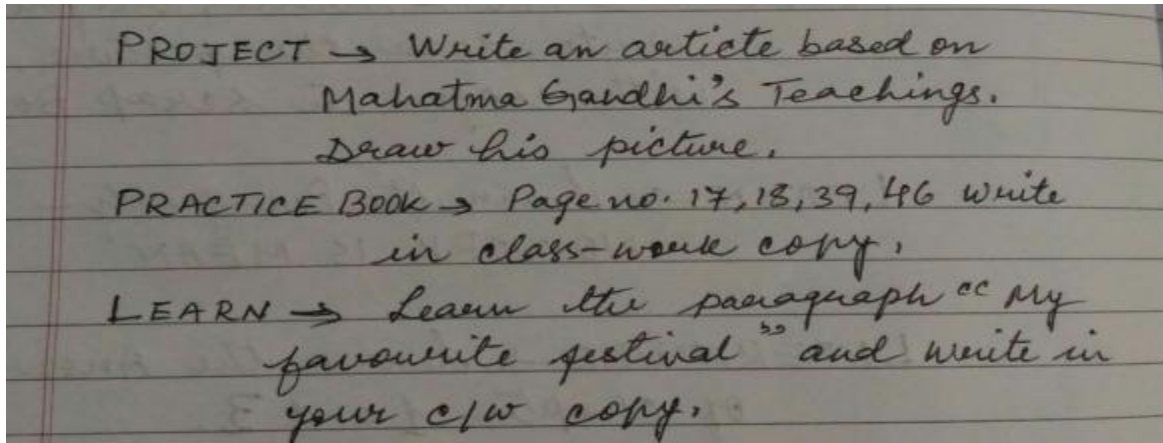 PROJECT → Write an article based on
Mahatma Gandhi's Teachings.
Draw his picture.
PRACTICE BOOK → Page no. 17, 18, 39, 46 write
in class-work copy.
LEARN → Learn the paragraph "My
favourite festival" and write in
your c/w copy.